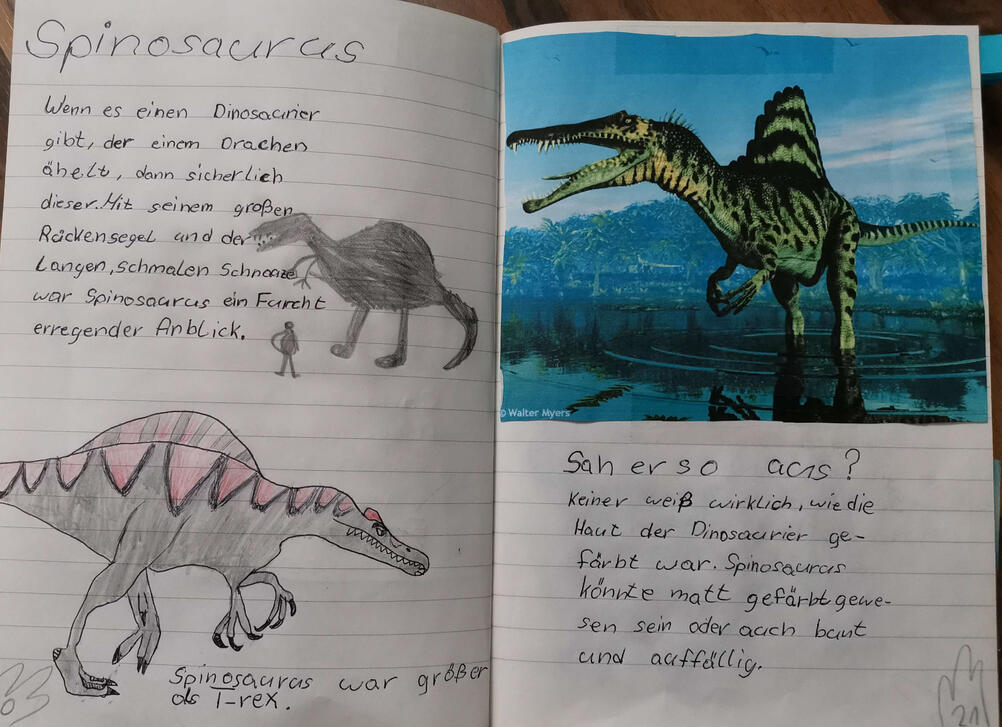 Spinosaurus
Wenn es einen Dinosaurier
gibt, der einem Drachen
ähelt, dann sicherlich
dieser. Mit seinem großen
Rückensegel und der
Langen, schmalen Schnauze
war Spinosaurus ein Furcht
erregender Anblick.
Spinosaurus war größer
als T-rex.
© Walter Myers
Sah er so aus?
Keiner weiß wirklich, wie die
Haut der Dinosaurier ge-
färbt war. Spinosaurus
könnte matt gefärbt gewe-
sen sein oder auch bunt
und auffällig.